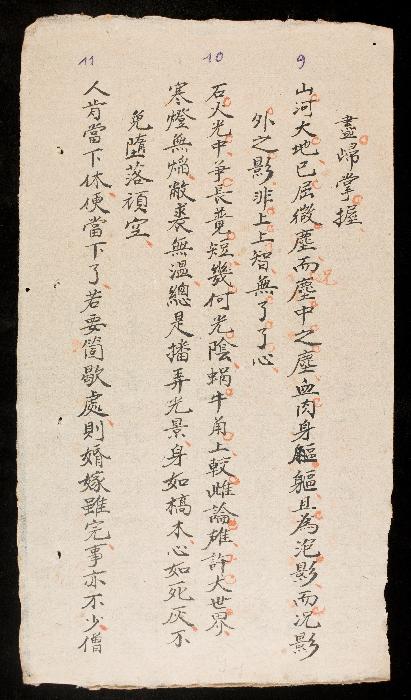 盡歸掌握
9
山河大地已屈微塵而塵中之塵血肉身軀軀且為泡影而况影
况
外之影非上上智無了了心
10
石火光中爭長竟短幾何光陰蝸牛角上較雌論雄許大世界
寒燈無焰敝裘無溫總是播弄光景身如槁木心如死灰不
免墮落頑空
11
人肯當下休便當下了若要箇歇處則婚嫁雖完事亦不少僧